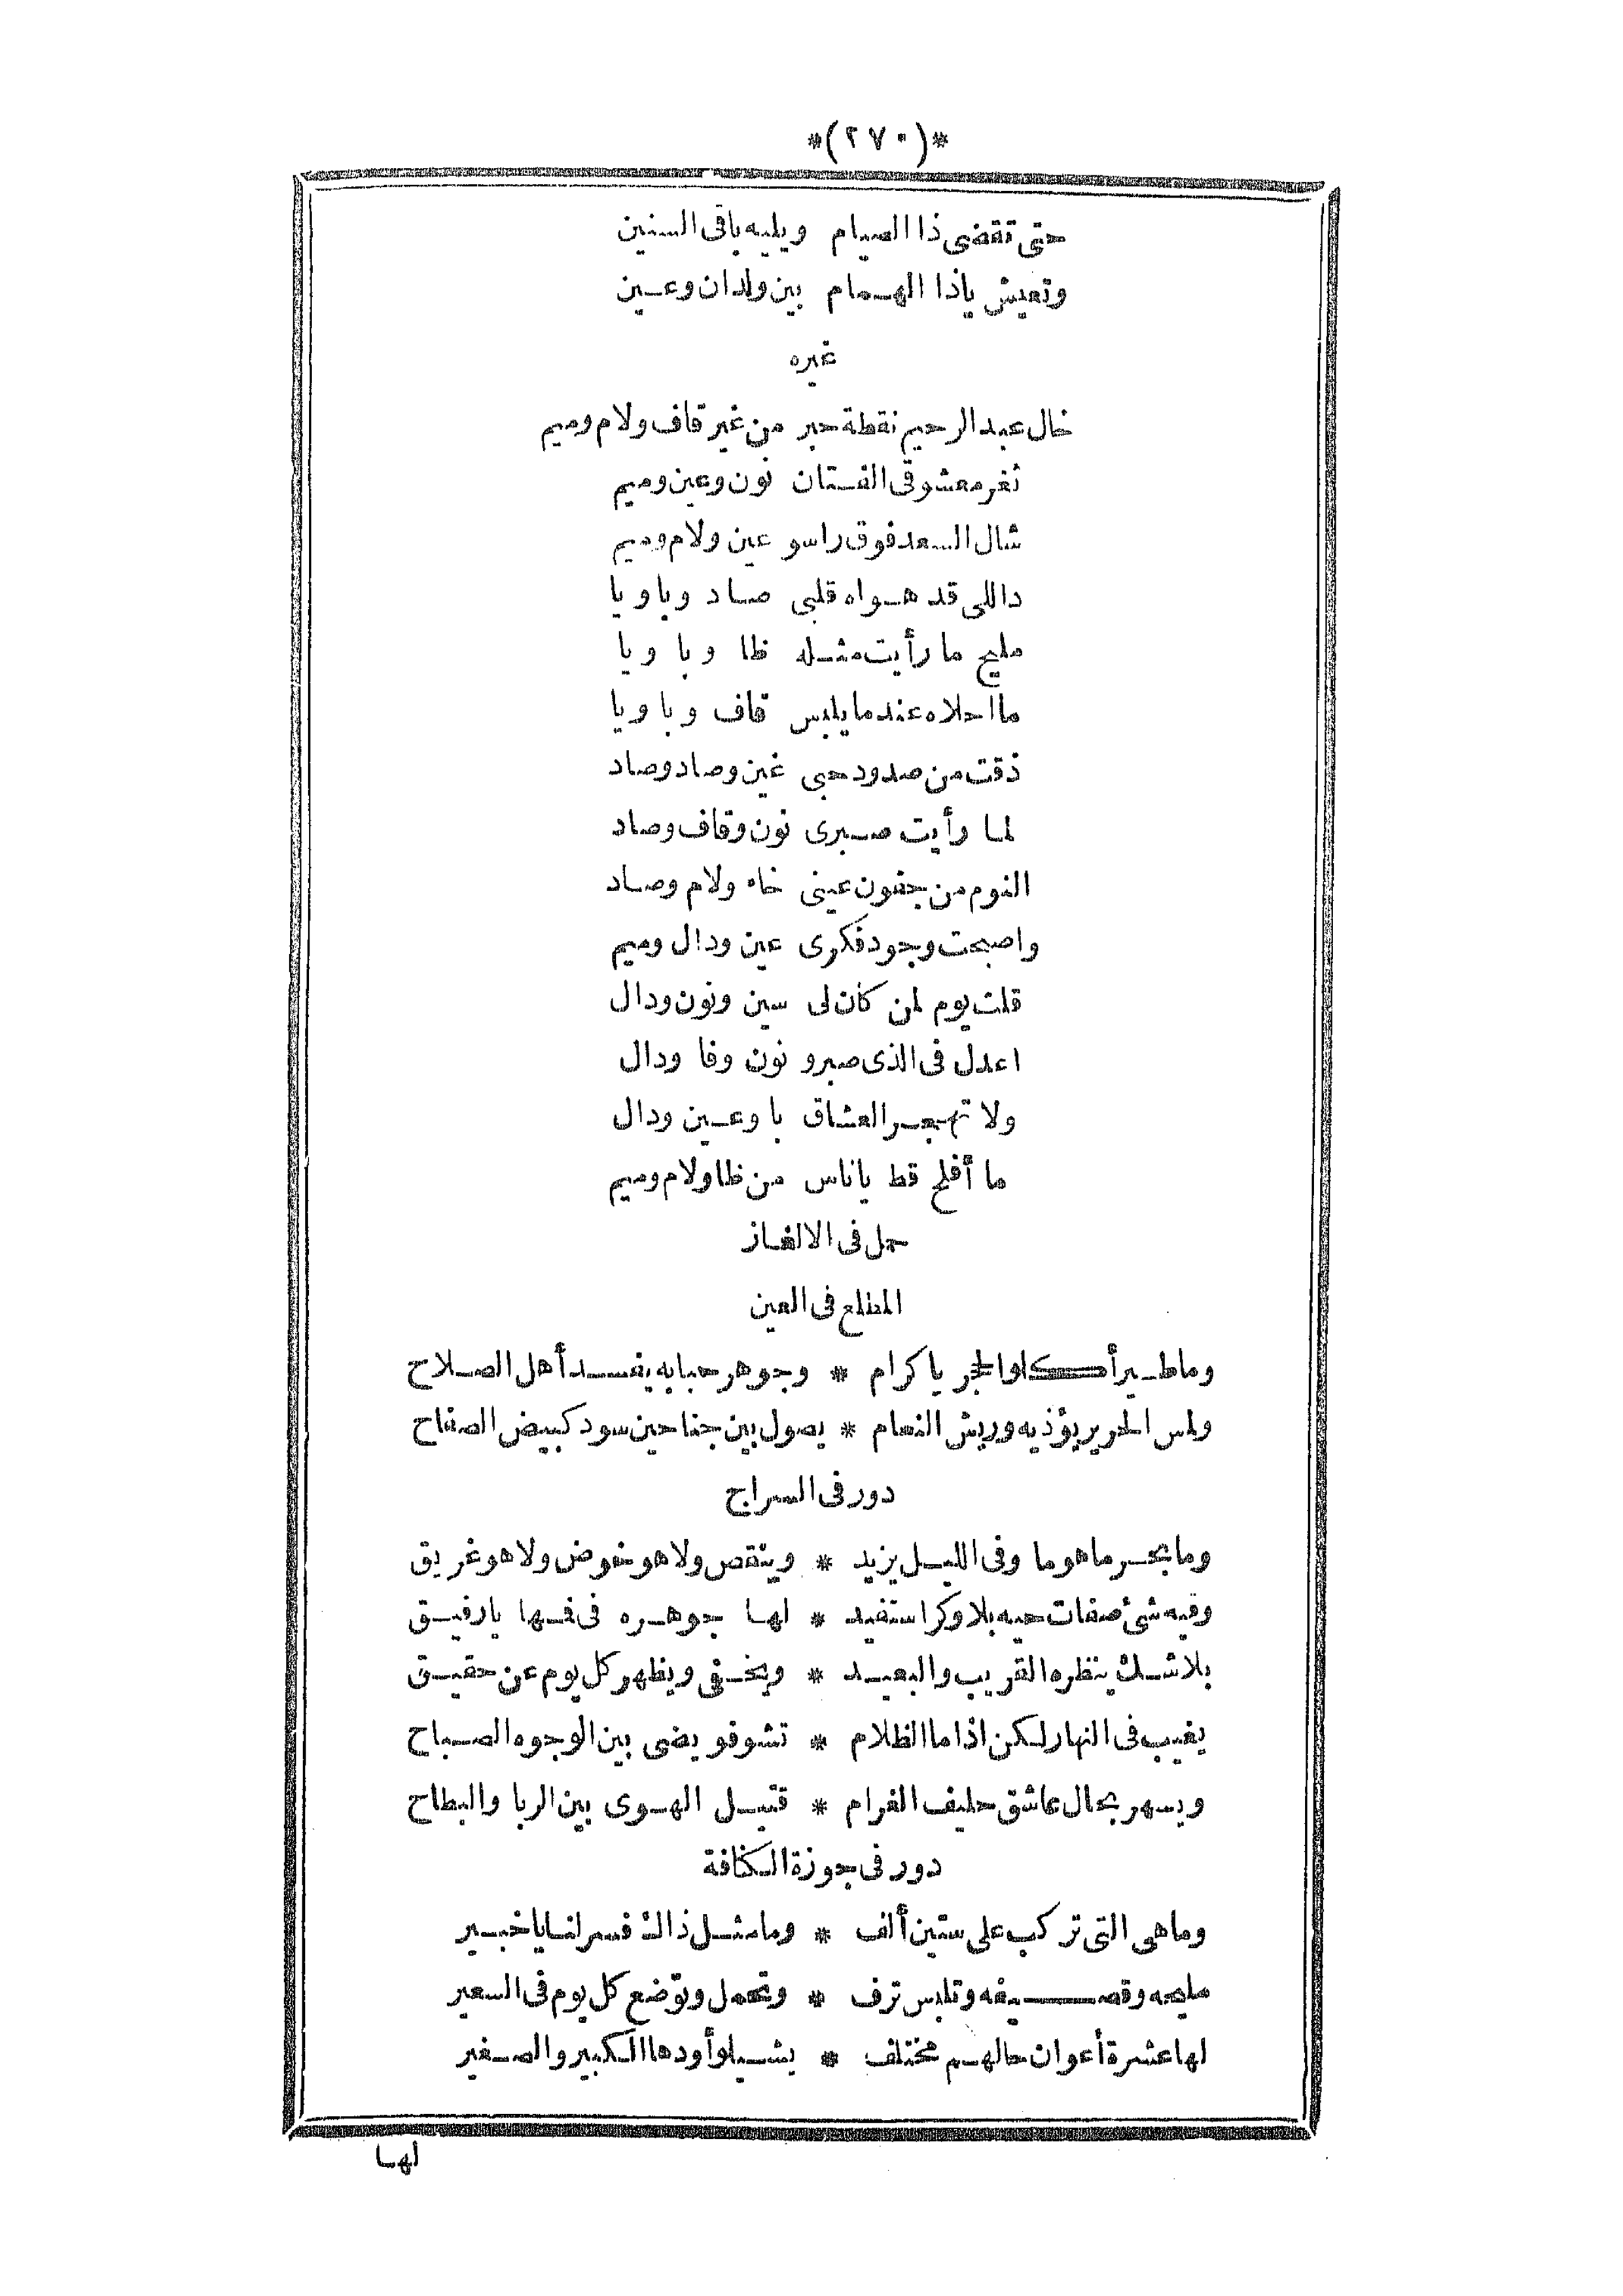 *(٢٧٠)*
حتى تقضى ذا الصيام ويليه باقى السنين
وتعيش ياذا الهمام بين ولدان وعين
غيره
خال عبد الرحيم نقطة حبر من غير قاف ولام وميم
ثغر معشوقى الفتان نون وعين وميم
شال السعد فوق راسو عين ولام وميم
داللى قد هواه قلبى صاد وبا ويا
مليح ما رأيت مثله ظا وبا ويا
ما احلاه عند ما يلبس قاف وبا ويا
ذقت من صدود حبى غين وصاد وصاد
لما رأيت صبرى نون وقاف وصاد
النوم من جفون عينى خاه ولام وصاد
واصبحت وجود فكرى عين ودال وميم
قلت يوم لمن كان لى سين ونون ودال
اعدل فى الذى صبرو نون وفا ودال
ولا تهجر العشاق با وعين ودال
ما أفلح قط ياناس من ظا ولام وميم
حمل فى الالغاز
المطلع فى العين
وما طير أكلوا الجر يا كرام * وجوهر حبابه يفسد أهل الصلاح
ولمس الحرير يؤذيه وريش النعام * يصول بين جناحين سود كبيض الصفاح
دور فى السراج
وما بحر ما هو ما وفى الليل يزيد * وينقص ولا هو غوض ولا هو غريق
وفيه شئ صفات حيه بلا وكر استفيد * لها جوهره فى فمها يا رفيق
بلا شك ينظره القريب والبعيد * ويخفى ويظهر كل يوم عن حقيق
يغيب فى النهار لكن اذا ما الظلام * تشوفو يضى بين الوجوه الصباح
ويسهر بحال عاشق حليف الغرام * قتيل الهوى بين الربا والبطاح
دور فى جوزة الكنافة
وما هى التى تركب على ستين ألف * وما مثل ذاك فسر لنا يا خبير
مليحه وقصيفه وتلبس ترف * وتحمل وتوضع كل يوم فى السعير
لها عشرة أعوان حالهم مختلف * يشيلو أودها الكبير والصغير
لها